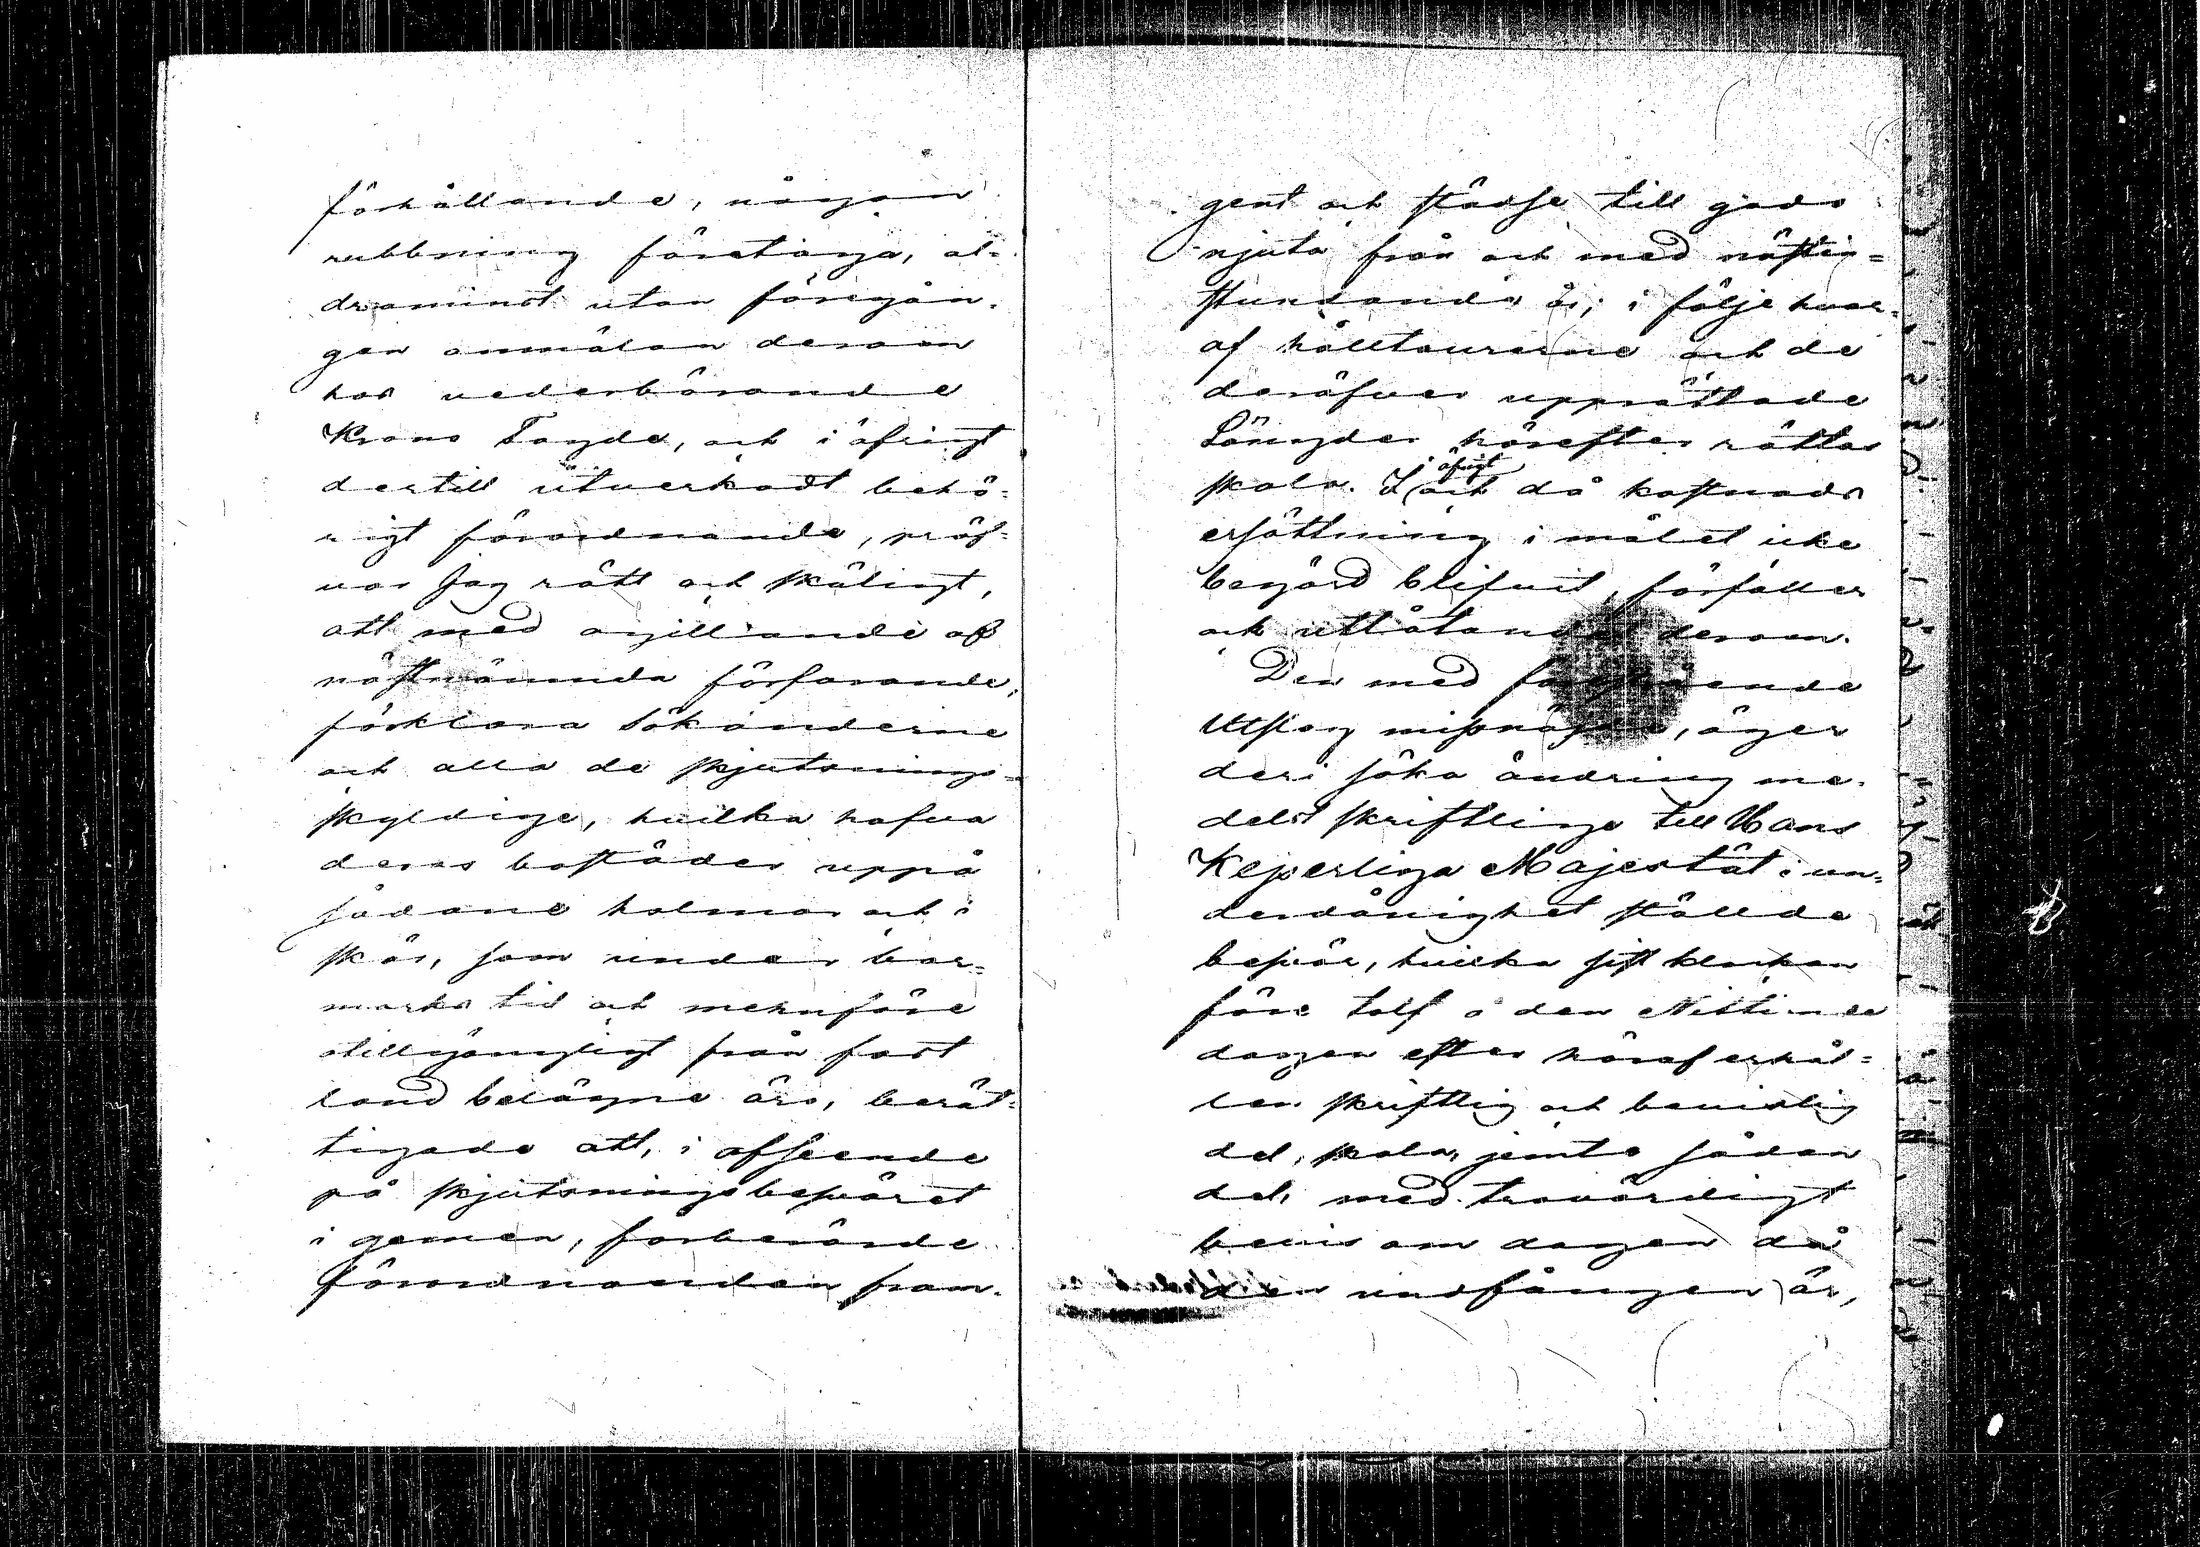 förhållande, någon
rubbning företaga, al=
draminst utan föregån-
gen anmälan derom
hos vederbörande
Krono Fogde, och i öfrigt
dertill utverkadt behö=
rigt förordnande, pröf=
var Jag rätt och skäligt,
att med ogillande af
nästnämnda förfarande,
förklara Sökanderne
och alla de skjutsnings=
skyldige, hvilka hafva
deras bostäder uppå
sådane holmar och i
skär, som under bar=
marks tid och menföre
otillgängligt från fast
land belägne äro, berät=
tigade att, i afseende
på skjutsningsbesväret
i gemen, förberörde
förordnanden fram-
gent och städse till godo
njuta från och med nästin=
stundande år; i följe hvar-
af hålltourerne och de
deröfver upprättade
Längder härefter rättas
skola. I öfrigt och då kostnads
ersättning i målet icke
begärd blifvit, förfaller
ock utlåtandet derom.
Den med förestående
Utslag missnöjde, äger
deri söka ändring me-
delst skriftliga till Hans
Kejserliga Majestät i un=
derdånighet ställde
besvär, hvilka sist klockan
före tolf å den Nittionde
dagen efter häraf erhål=
len skriftlig och bevislig
del, skola, jemte sådan
del, med trovärdigt
bevis om dagen då
den undfången är,